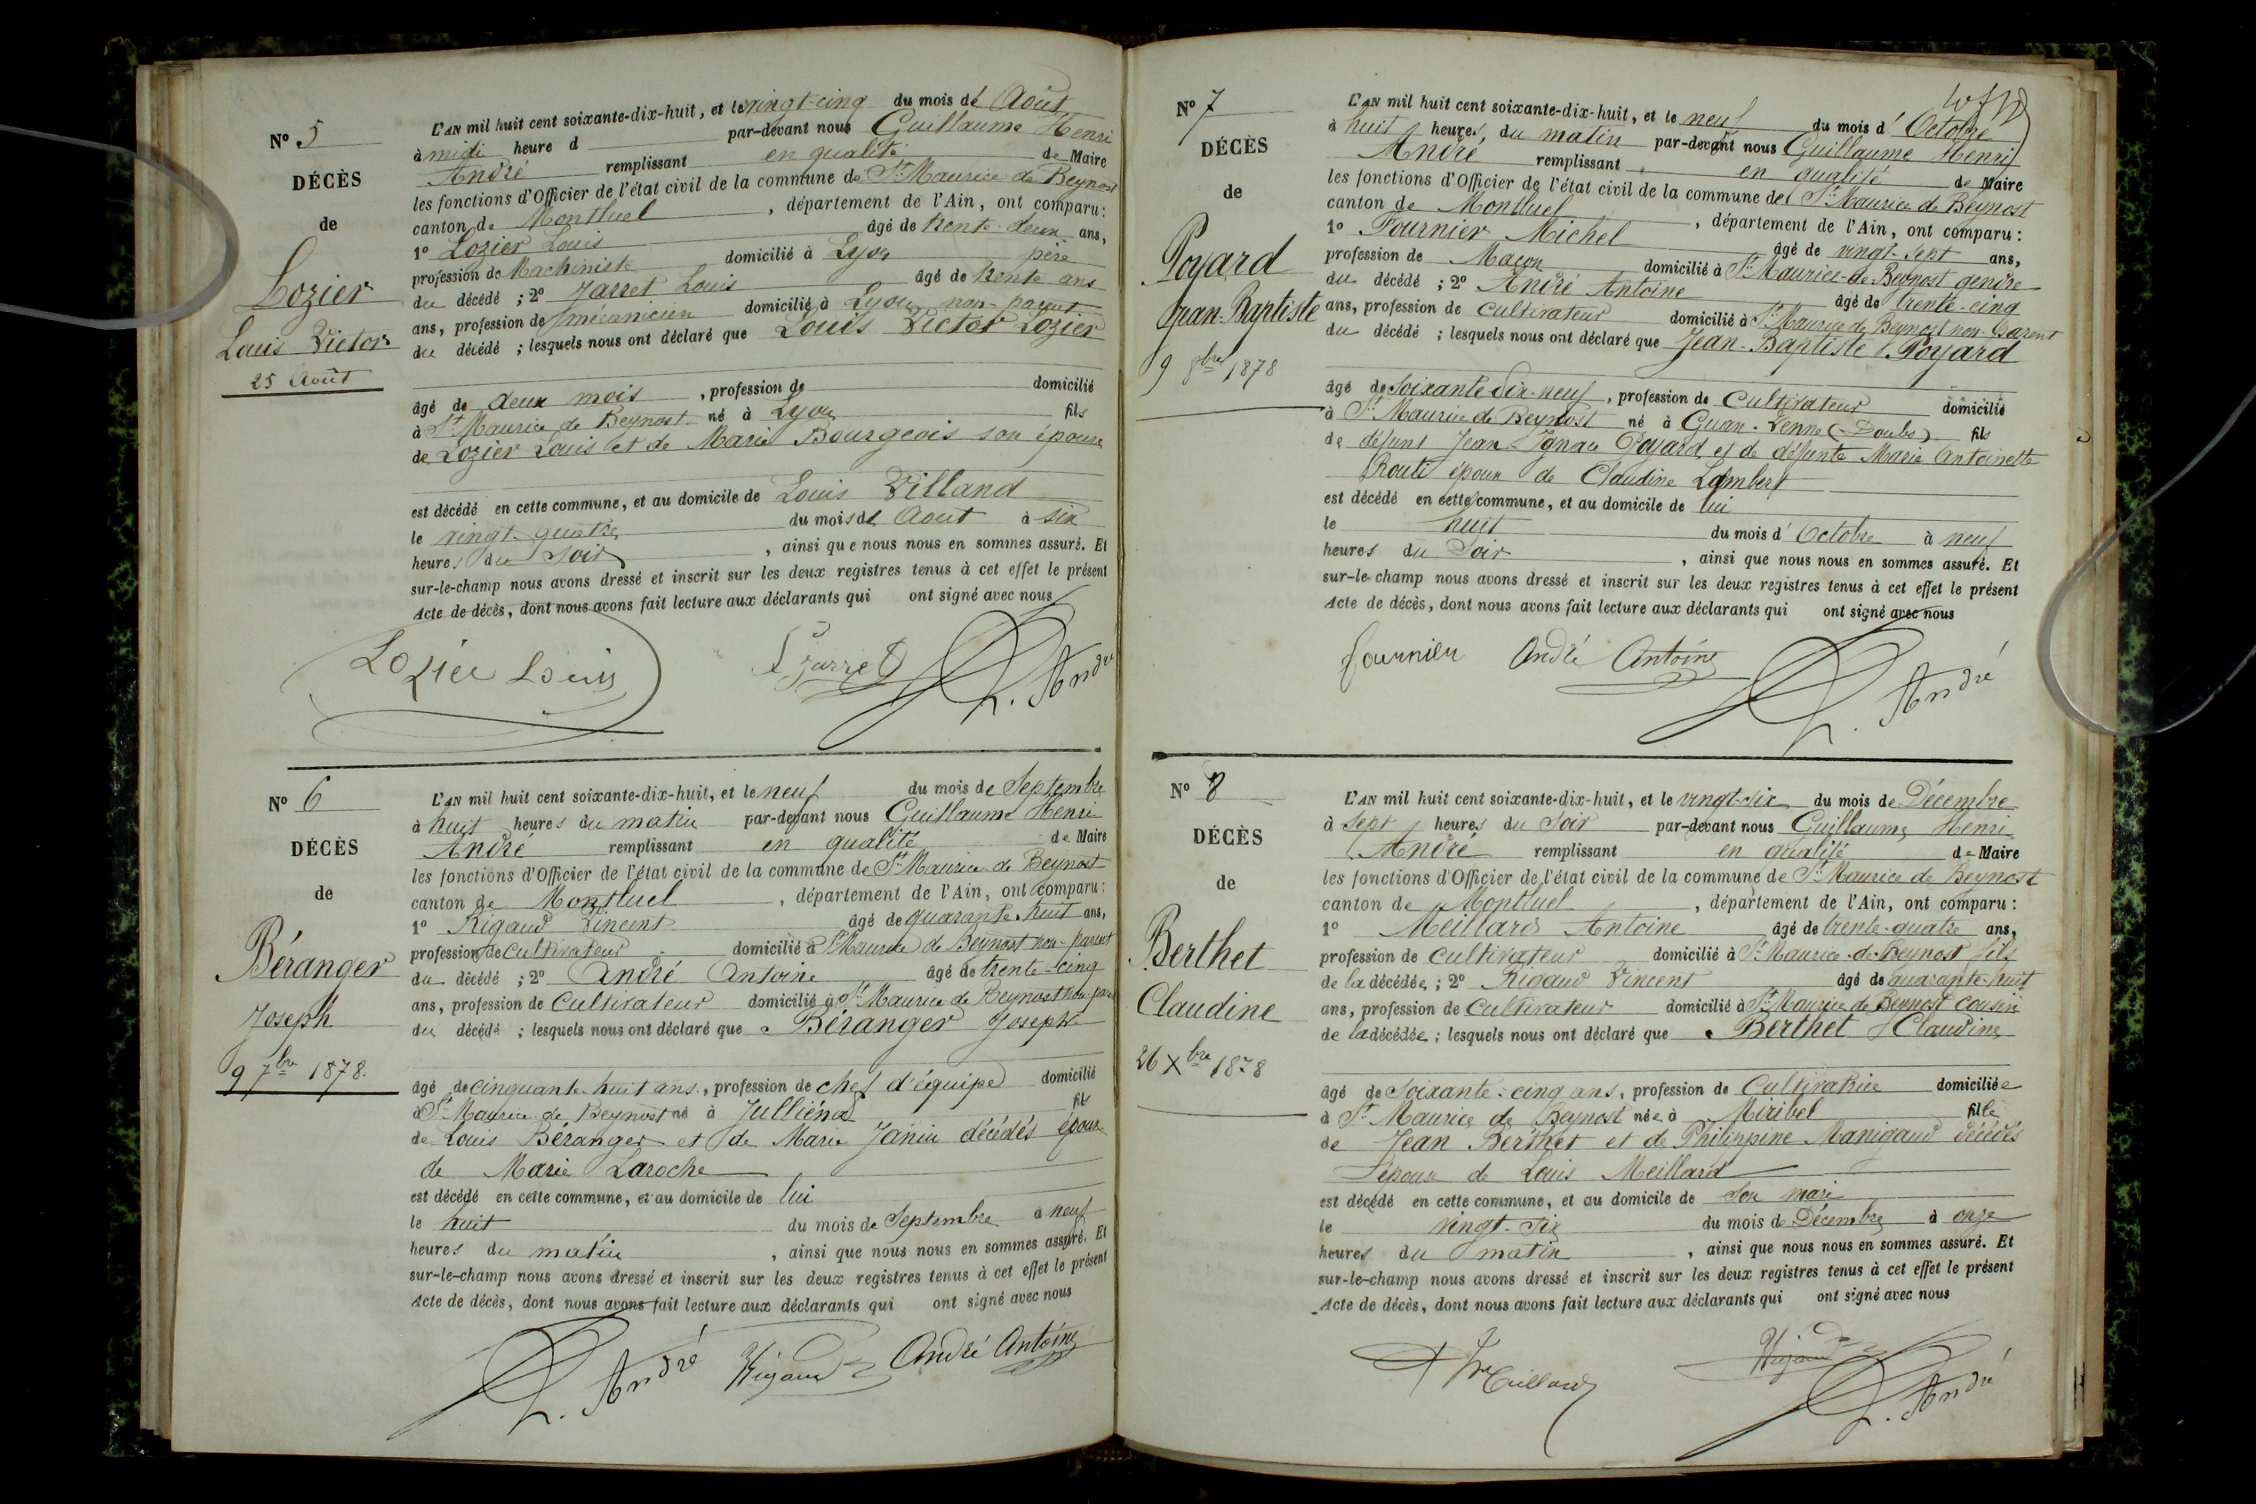 Nº 5
DÉCÈS
de
Lozier
Louis Victor
25 Août
L'AN mil huit cent soixante-dix-huit, et le vingt-cinq du mois de Août
à midi heure d par-devant nous Guillaume Henri
André remplissant en qualité de Maire
les fonctions d'Officier de l'état civil de la commune de St Maurice de Beynost
canton de Montluel, département de l'Ain, ont comparu:
1º Lozier Louis âgé de trente-deux ans,
profession de Machiniste domicilié à Lyon père
du décédé ; 2º Jarret Louis âgé de trente ans
ans, profession de mécanicien domicilié à Lyon non-parent
du décédé ; lesquels nous ont déclaré que Louis Victor Lozier
âgé de deux mois, profession de domicilié
à St Maurice de Beynost né à Lyon fils
de Lozier Louis et de Marie Bourgeois son épouse
est décédé en cette commune, et au domicile de Louis Villand
le vingt-quatre du mois de Aout à six
heures du soir, ainsi que nous nous en sommes assuré. Et
sur-le-champ nous avons dressé et inscrit sur les deux registres tenus à cet effet le présent
Acte de décès, dont nous avons fait lecture aux déclarants qui ont signé avec nous
Lozier Louis L Jarret h. André
Nº 6
DÉCÈS
de
Béranger
Joseph
9 7bre 1878.
L'AN mil huit cent soixante-dix-huit, et le neuf du mois de Septembre
à huit heures du matin par-devant nous Guillaume Henri
André remplissant en qualité de Maire
les fonctions d'Officier de l'état civil de la commune de St Maurice de Beynost
canton de Montluel, département de l'Ain, ont comparu:
1º Rigaud Vincent âgé de quarante-huit ans,
profession de cultivateur domicilié à St Maurice de Beynost non-parent
du décédé ; 2º André Antoine âgé de trente-cinq
ans, profession de cultivateur domicilié à St Maurice de Beynost non-parent
du décédé ; lesquels nous ont déclaré que Béranger Joseph
âgé de cinquante-huit ans, profession de chef d'équipe domicilié
à St Maurice de Beynost né à Julliénas fils
de Louis Béranger et de Marie Janin décédés époux
de Marie Laroche
est décédé en cette commune, et au domicile de lui
le huit du mois de Septembre à neuf
heures du matin, ainsi que nous nous en sommes assuré. Et
sur-le-champ nous avons dressé et inscrit sur les deux registres tenus à cet effet le présent
Acte de décès, dont nous avons fait lecture aux déclarants qui ont signé avec nous
h. André Rigaud André Antoine
Nº 7
DÉCÈS
de
Poyard
Jean-Baptiste
9 8bre 1878
L'AN mil huit cent soixante-dix-huit, et le neuf du mois d'Octobre
à huit heures du matin par-devant nous Guillaume Henri
André remplissant en qualité de Maire
les fonctions d'Officier de l'état civil de la commune de St Maurice de Beynost
canton de Montluel, département de l'Ain, ont comparu:
1º Fournier Michel âgé de vingt-sept ans,
profession de Maçon domicilié à St Maurice-de-Beynost gendre
du décédé ; 2º André Antoine âgé de trente-cinq
ans, profession de cultivateur domicilié à St Maurice de Beynost non-parent
du décédé ; lesquels nous ont déclaré que Jean-Baptiste Poyard
âgé de soixante dix-neuf, profession de cultivateur domicilié
à St Maurice de Beynost né à Guan-Venne (Doubs) fils
de défunt Jean Ignace Poyard et de défunte Marie Antoinette
Routi époux de Claudine Lambert
est décédé en cette commune, et au domicile de lui
le huit du mois d'Octobre à neuf
heures du soir, ainsi que nous nous en sommes assuré. Et
sur-le-champ nous avons dressé et inscrit sur les deux registres tenus à cet effet le présent
Acte de décès, dont nous avons fait lecture aux déclarants qui ont signé avec nous
fournier André Antoine h. André
Nº 8
DÉCÈS
de
Berthet
Claudine
26 Xbre 1878
L'AN mil huit cent soixante-dix-huit, et le vingt-six du mois de Décembre
à sept heures du soir par-devant nous Guillaume Henri
André remplissant en qualité de Maire
les fonctions d'Officier de l'état civil de la commune de St Maurice de Beynost
canton de Montluel, département de l'Ain, ont comparu:
1º Meillard Antoine âgé de trente-quatre ans,
profession de cultivateur domicilié à St Maurice-de-Beynost fils
de la décédée ; 2º Rigaud Vincent âgé de quarante-huit
ans, profession de cultivateur domicilié à St Maurice de Beynost cousin
de la décédée ; lesquels nous ont déclaré que Berthet Claudine
âgé de soixante-cinq ans, profession de cultivatrice domiciliée
à St Maurice de Beynost née à Miribel fille
de Jean Berthet et de Philippine Manigaud décédés
épouse de Louis Meillard
est décédé en cette commune, et au domicile de son mari
le vingt-six du mois de Décembre à onze
heures du matin, ainsi que nous nous en sommes assuré. Et
sur-le-champ nous avons dressé et inscrit sur les deux registres tenus à cet effet le présent
Acte de décès, dont nous avons fait lecture aux déclarants qui ont signé avec nous
Meillard Rigaud h. André